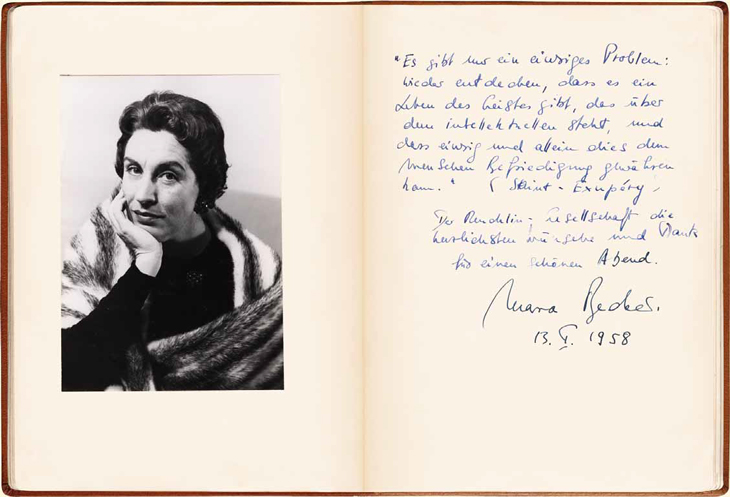 "Es gibt nur ein einziges Problem:
wieder entdecken, dass es ein
Leben des Geistes gibt, das über
dem intellektuellen steht, und
dass einzig und allein dies dem
Menschen Befriedigung gewähren
kann." (Saint-Exupéry)
Der Reuchlin-Gesellschaft die
herzlichsten Wünsche und Dank
für einen schönen Abend.
Maria Becker.
13. I. 1958